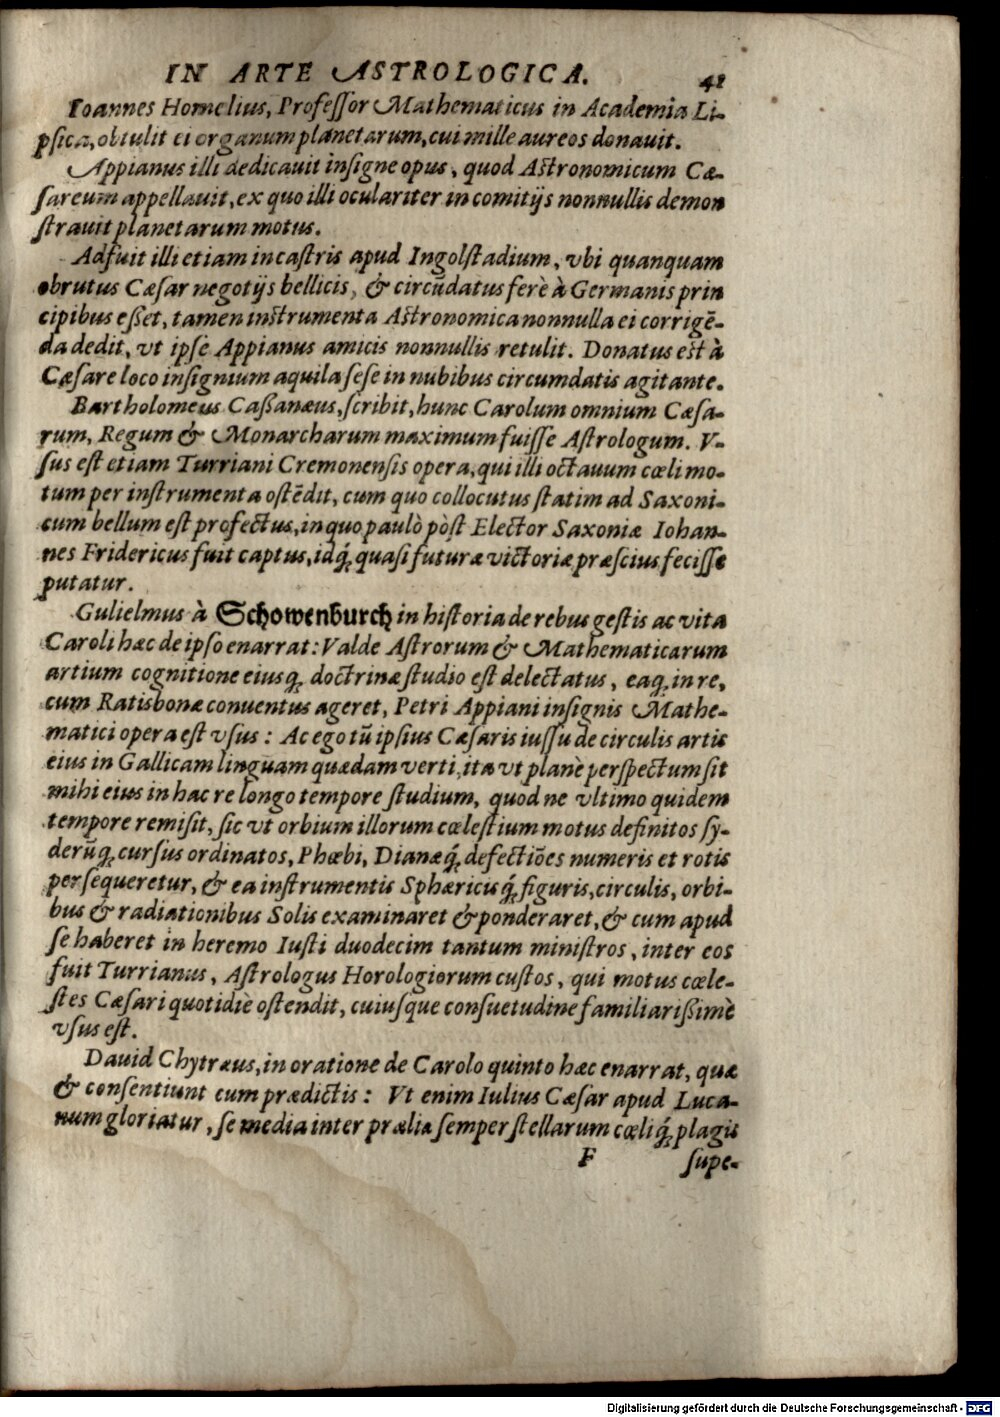 IN ARTE ASTROLOGICA. 41
Ioannes Homelius, Professor Mathematicus in Academia Li-
psica, obtulit ei organum planetarum, cui mille aureos donauit.
Appianus illi dedicauit insigne opus, quod Astronomicum Cæ-
sareum appellauit, ex quo illi oculariter in comitijs nonnullis demon
strauit planetarum motus.
Adfuit illi etiam in castris apud Ingolstadium, vbi quanquam
obrutus Cæsar negotijs bellicis, & circũdatus ferè à Germanis prin
cipibus esset, tamen instrumenta Astronomica nonnulla ei corrigē-
da dedit, vt ipse Appianus amicis nonnullis retulit. Donatus est à
Cæsare loco insignium aquila sese in nubibus circumdatis agitante.
Bartholomeus Cassanæus, scribit, hunc Carolum omnium Cæsa-
rum, Regum & Monarcharum maximum fuisse Astrologum. V-
sus est etiam Turriani Cremonensis opera, qui illi octauum cœli mo-
tum per instrumenta ostēdit, cum quo collocutus statim ad Saxoni-
cum bellum est profectus, in quo paulò pòst Elector Saxoniæ Iohan-
nes Fridericus fuit captus, idq́; quasi futuræ victoriæ præscius fecisse
putatur.
Gulielmus à Schowenburch in historia de rebus gestis ac vita
Caroli hæc de ipso enarrat: Valde Astrorum & Mathematicarum
artium cognitione eiusq; doctrinæ studio est delectatus, eaq; in re,
cum Ratisbonæ conuentus ageret, Petri Appiani insignis Mathe-
matici opera est vsus: Ac ego tũ ipsius Cæsaris iussu de circulis artis
eius in Gallicam linguam quædam verti, ita vt planè perspectum sit
mihi eius in hac re longo tempore studium, quod ne vltimo quidem
tempore remisit, sic vt orbium illorum cœlestium motus definitos sy-
derũq; cursus ordinatos, Phœbi, Dianæq́; defectiōes numeris et rotis
persequeretur, & ea instrumentis Sphæricisq́; figuris, circulis, orbi-
bus & radiationibus Solis examinaret & ponderaret, & cum apud
se haberet in heremo Iusti duodecim tantum ministros, inter eos
fuit Turrianus, Astrologus Horologiorum custos, qui motus cœle-
stes Cæsari quotidiè ostendit, cuiusque consuetudine familiarissimè
vsus est.
Dauid Chytræus, in oratione de Carolo quinto hæc enarrat, quæ
& consentiunt cum prædictis: Vt enim Iulius Cæsar apud Luca-
num gloriatur, se media inter prælia semper stellarum cœliq́; plagis
F supe-
Digitalisierung gefördert durch die Deutsche Forschungsgemeinschaft - DFG